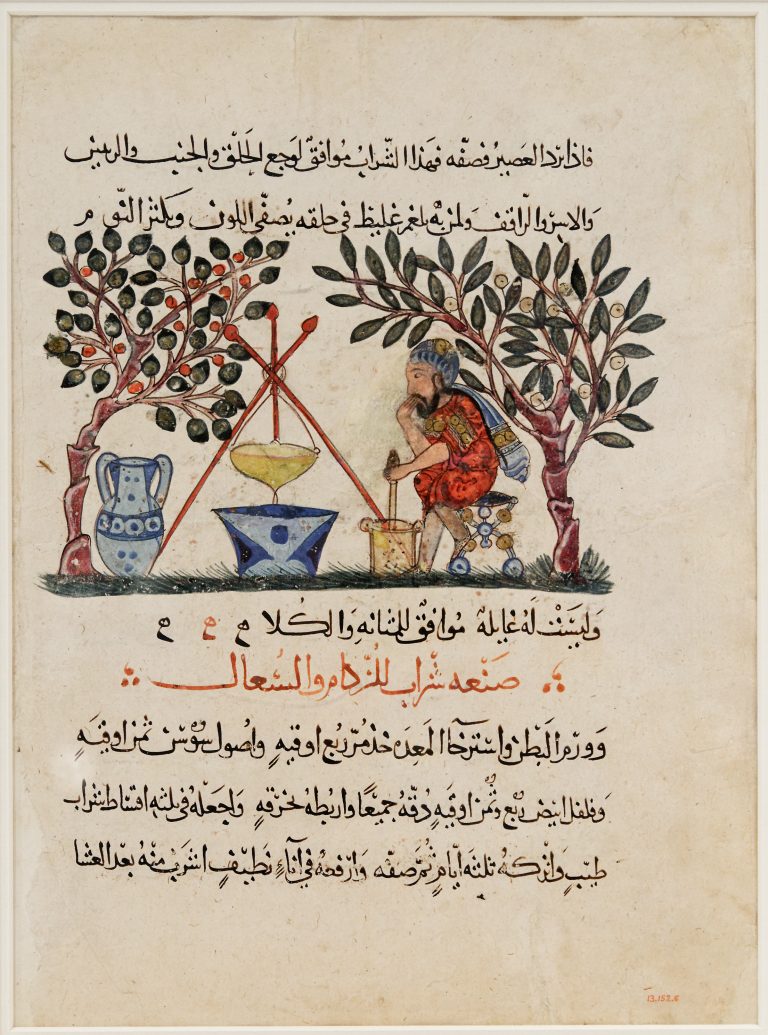 فاذا برد العصير فصفه فهذا الشراب موافق لوجع الحلق والجنب والريتين
والاسر والراقف ولمن به بلغم غليظ في حلقه يصفي اللون ويكثر النوم
وليست له غايله موافق للمثانه والكلا ح ح ح
صنعه شراب للزكام والسعال
وورم البطن واسترخا المعده خذ مر ربع اوقيه واصول سوس ثمن اوقيه
وفلفل ابيض ربع وثمن اوقيه دقه جميعا واربطه بخرقه واجعله في ثلثه اقساط شراب
طيب واتركه ثلثه أيام ثم صفه وارفعه في اناء نظيف اشرب منه بعد العشا
13.152.6